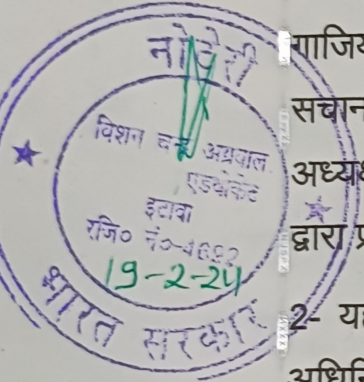 नोटेरी
विशन चन्द्र अग्रवाल
एडवोकेट
इटावा
रजि० नं०-4692
19-2-24
भारत सरकार
गाजि
सचान
अध्यक्ष
द्वारा प्र
2- य
अधिनि